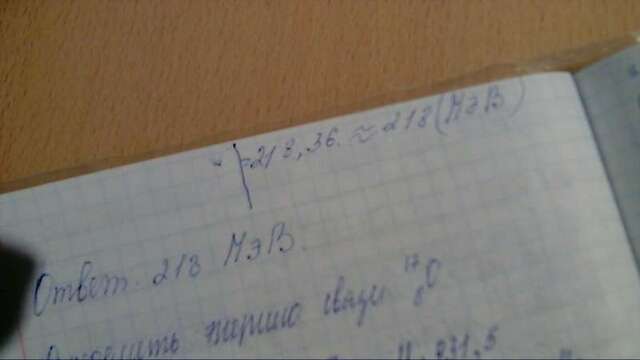 =218,36. ≈ 218(МэВ)
Ответ. 218 МэВ.
энергию связи ¹⁷₈O
931,5